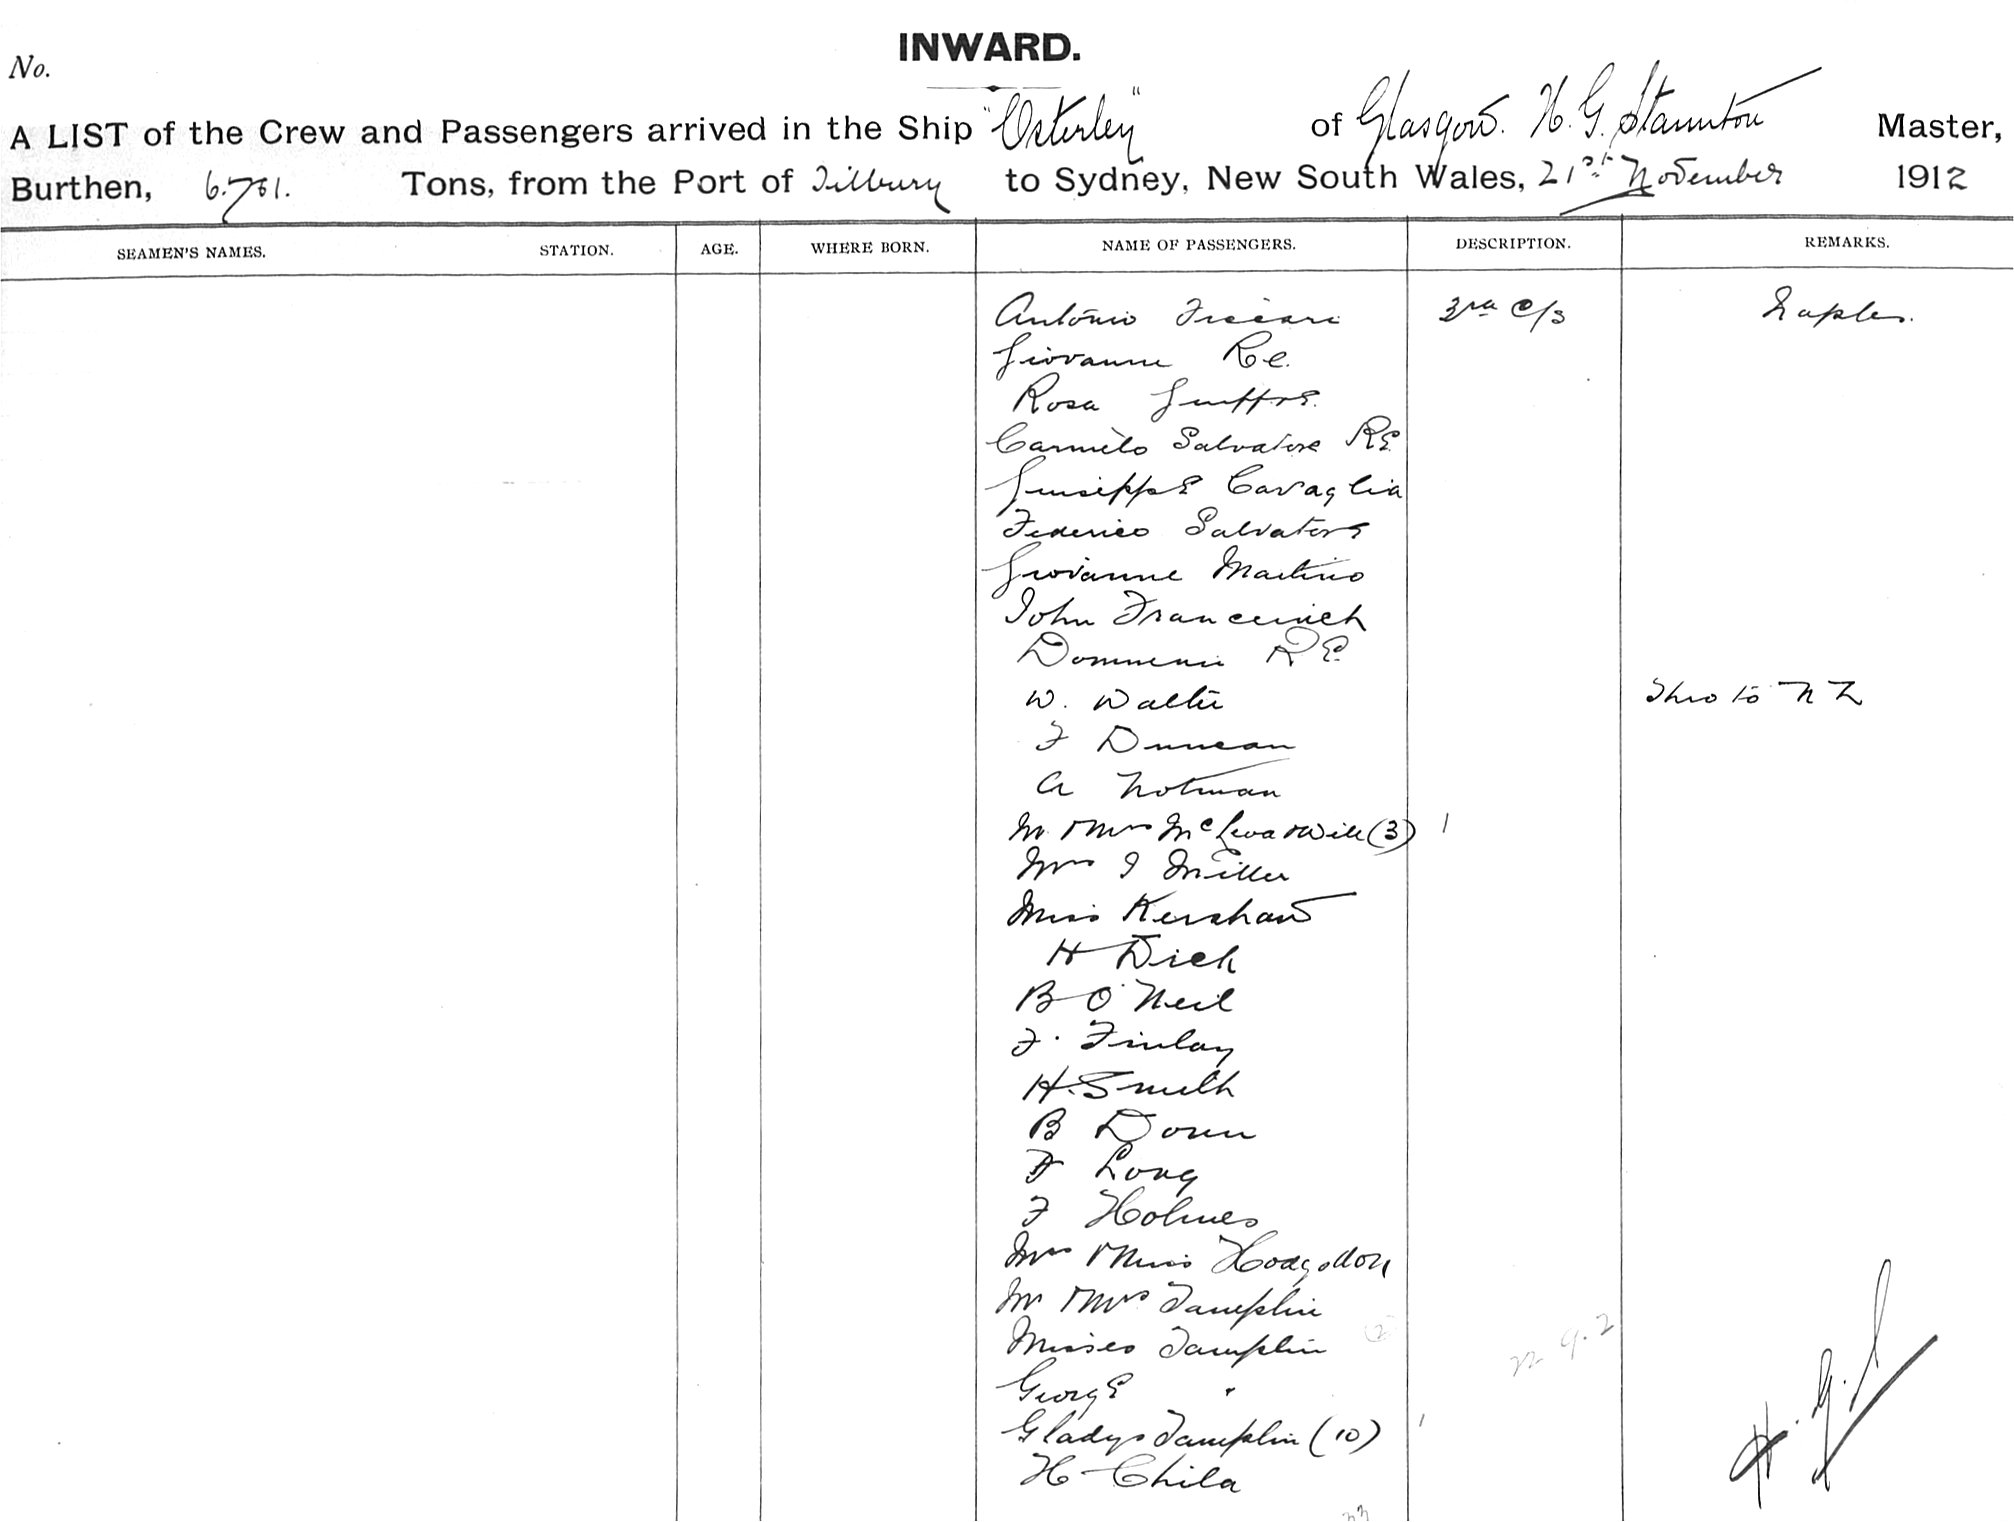 INWARD.
No.
A LIST of the Crew and Passengers arrived in the Ship "Osterley" of Glasgow. H. G. Staunton Master,
Burthen, 6.781. Tons, from the Port of Tilbury to Sydney, New South Wales, 21st November 1912
SEAMEN'S NAMES. STATION. AGE. WHERE BORN. NAME OF PASSENGERS. DESCRIPTION. REMARKS.
Antonio 3rd C/s Naples.
Giovanne Re.
Rosa Giuffre.
Carmelo Salvatore RE
Giuseppe Cavaglia
Federico Salvatore
Giovanne Martino
John Francevich
RE.
W. Walter Thro to NZ
F Duncan
A Notman
Mr & Mrs (3) 1
Mrs I Miller
Miss Kershaw
H Dick
B O'Neil
F. Finlay
H. Smith
B Down
F Long
F Holmes
Mrs & Miss Hodgsdon
Mr & Mrs Tamplin
Misses Tamplin (2)
George "
Gladys Tamplin (10) 1
H Chila
H. G. S